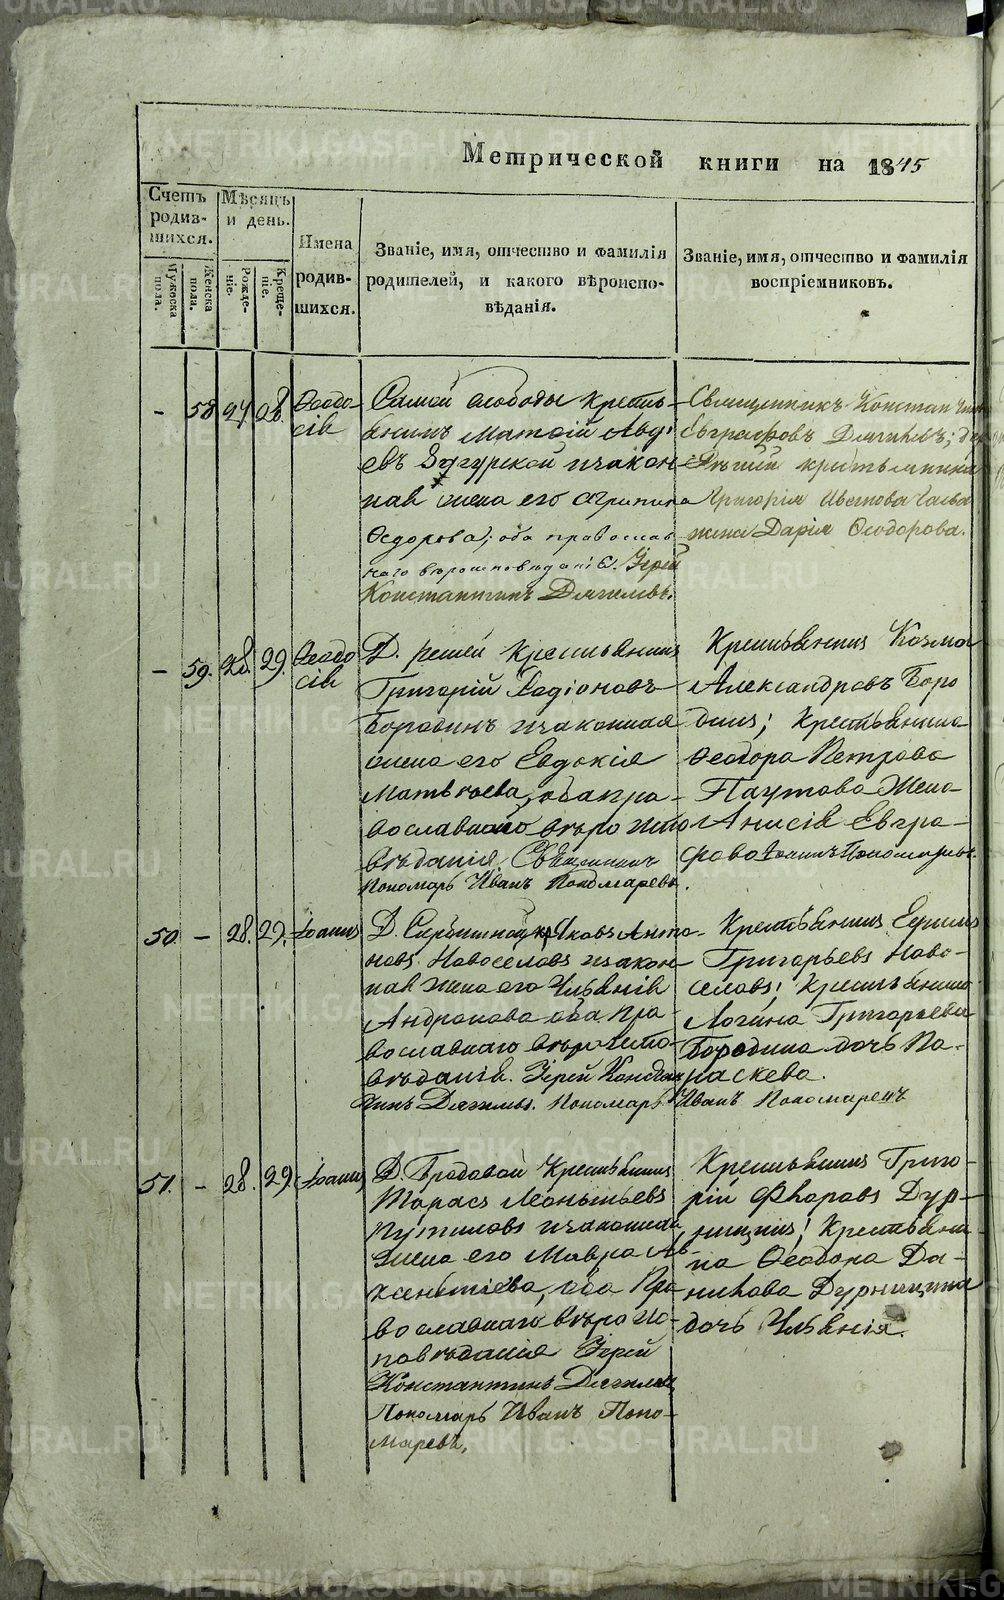 Метрической книги на 1845
Счетъ родив-шихся.
Мѣсяцъ и день.
Имена родив-шихся.
Званіе, имя, отчество и фамилія родителей, и какого вѣроиспо-вѣданія.
Званіе, имя, отчество и фамилія воспріемниковъ.
Мужеска пола.
Женска пола.
Рожде-ніе.
Креще-ніе.
- 58 27 28. Ѳеодо-
сія
Самой слободы кресть-
янинъ Матѳій Авд
евъ изакон-
ная жена его Агрипина
Ѳедорова; оба православ
наго вѣроисповѣданія. Іерей
Константинъ Дягилевъ.
Священникъ Констан
Евграфовъ Дягилевъ;
крестьянина
Григорія
жена Дарія Ѳеодорова.
- 59. 28. 29. Ѳеодо
сія
Д. Крестьянинъ
Григорій Родіоновъ
Бородинъ изаконная
жена его Евдокія
Матвѣева, оба пра-
вославнаго вѣроиспо
вѣданія. Священникъ
Пономарь Иванъ Пономаревъ.
Крестьянинъ Козма
Александровъ Боро
динъ; Крестьянина
Ѳеодора Петрова
Паутова Жена
Анисія Евгра-
фова
50 - 28. 29. Іоаннъ
Д. Яковъ Анто-
новъ Новоселовъ изакон-
ная жена его Ульянія
Андронова оба пра-
вославнаго вѣроиспо-
вѣданія. Іерей Констан
тинъ Дягилевъ. Пономарь Иванъ Пономаревъ
Крестьянинъ Ефимъ
Григорьевъ Ново-
селовъ; Крестьянина
Логина Григорьева
Бородина дочь Па-
раскева.
51. - 28. 29. Іоаннъ
Д. Бродовой Крестьянинъ
Тарасъ Леонтьевъ
Путиловъ изаконная
жена его Мавра Ав-
ксентіева, оба Пра
вославнаго вѣроис-
повѣданія Іерей
Константинъ Дягилевъ
Пономарь Иванъ Поно-
маревъ.
Крестьянинъ Григо-
рій Фларовъ Дур-
ницинъ; Крестьяни-
на Ѳеодора Да-
нилова Дурницина
дочь Ульянія.
METRIKI.GASO-URAL.RU